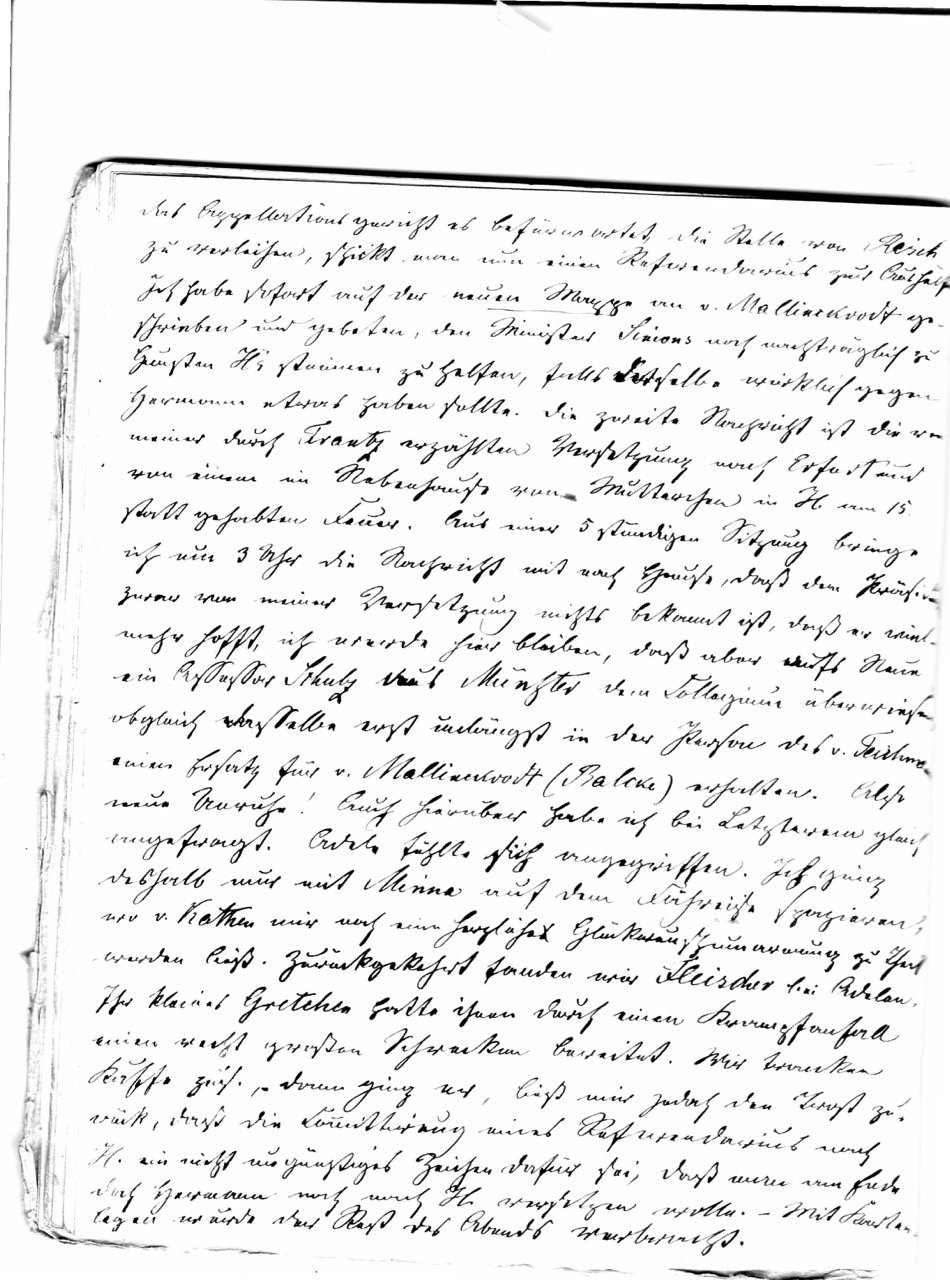 das Appellationsgericht es befürwortet, die Stelle von Resch
zu verleihen, schickt man nun einen Referendarius zur Aushülfe
Ich habe sofort auf der neuen Mappe an v. Mallinckrodt ge-
schrieben und gebeten, den Minister Simons noch nachträglich zu
Gunsten H's stimmen zu helfen, falls derselbe wirklich gegen
Hermann etwas haben sollte. Die zweite Nachricht ist die von
meiner durch Frantz erzählten Versetzung nach Erfort und
von einem im Nebenhause von Mutterchen in H. am 15
statt gehabten Feuer. Aus einer 5 stündigen Sitzung bringe
ich um 3 Uhr die Nachricht mit nach Hause, daß dem Präsi-
zwar von meiner Versetzung nichts bekannt ist, daß er viel-
mehr hofft, ich werde hier bleiben, daß aber aufs Neue
ein Assessor Schultz aus Münster dem Collegium überwiesen
obgleich dasselbe erst unlängst in der Person des v.
einen Ersatz für v. Mallinckrodt (Balcke) erhalten. Also
neue Unruhe! Auch hierüber habe ich bei Letzterem gleich
angefragt. Adele fühlte sich angegriffen. Ich ging
deshalb nur mit Minna auf dem spazieren,
wo v. Kathen mir noch eine herzliche Glückwunschumarmung zu Theil
werden ließ. Zurückgekehrt fanden wir Fleischer bei Adelen.
Ihr kleines Gretchen hatte ihnen durch einen Krampfanfall
einen recht großen Schrecken bereitet. Wir tranken
Kaffe zus., dann ging er, ließ mir jedoch den Trost zu-
rück, daß die Committirung eines Referendarius nach
H. ein nicht ungünstiges Zeichen dafür sei, daß man am Ende
doch Hermann noch nach H. versetzen wolle. – Mit Karten-
legen wurde der Rest des Abends verbracht.